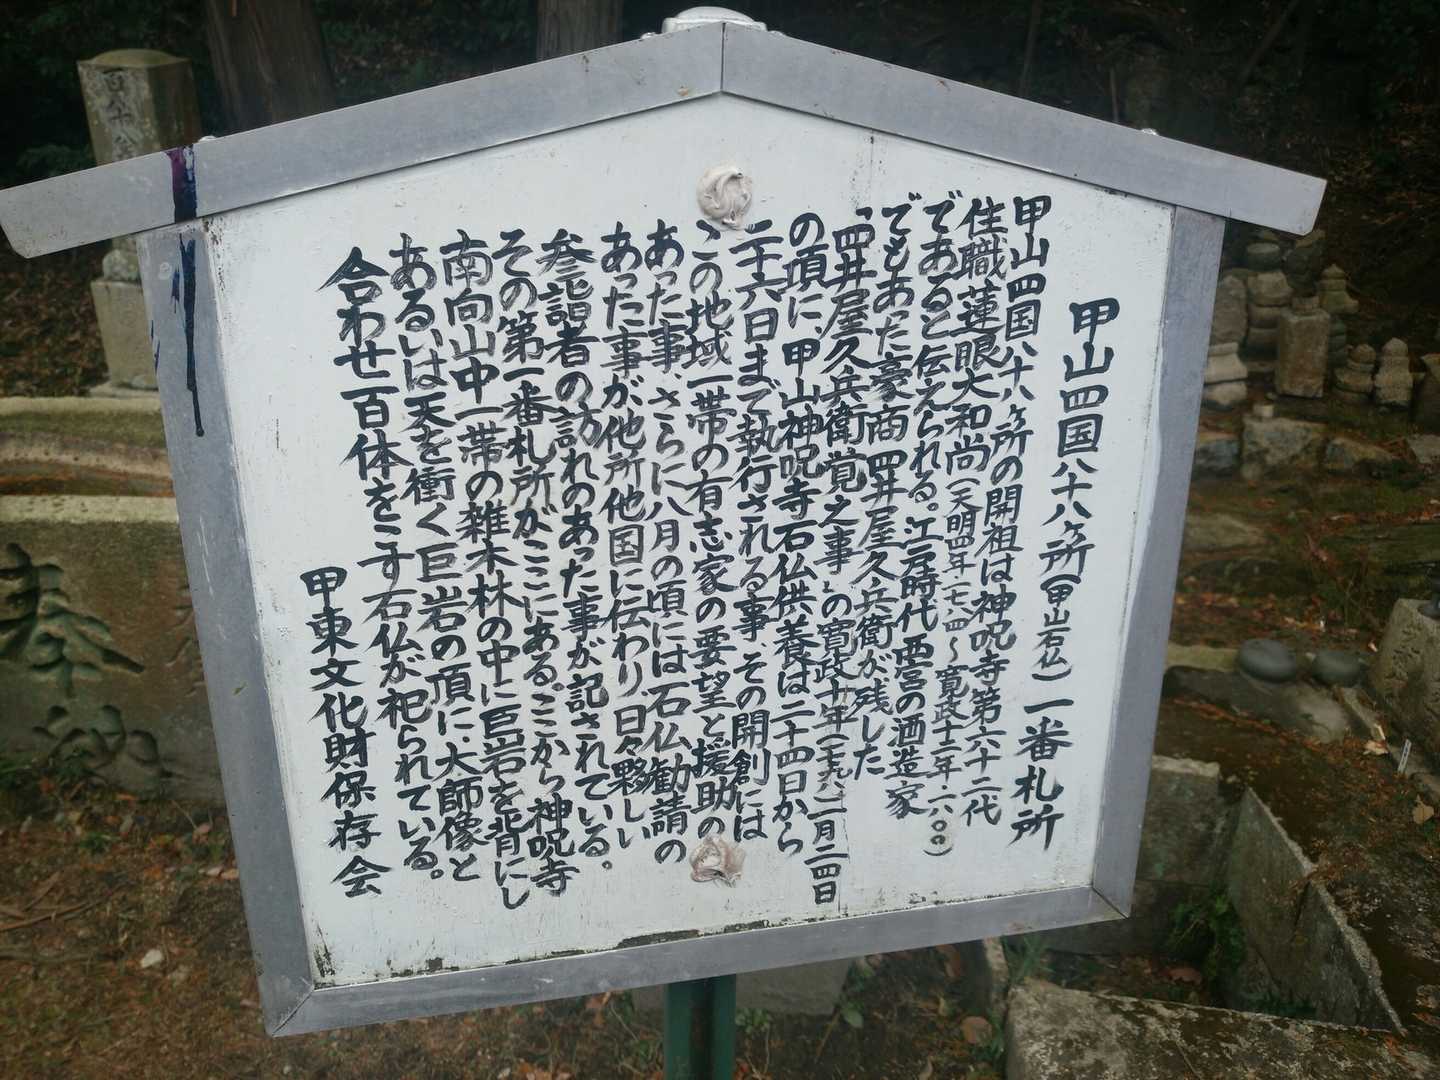 甲山四国八十八ヶ所(甲山石仏)一番札所
甲山四国八十八ヶ所の開祖は神呪寺第六十二代
住職蓮眼大和尚(天明四年一七八四〜寛政十二年一八〇〇)
であると伝えられる。江戸時代西宮の酒造家
でもあった豪商四井屋久兵衛が残した
「四井屋久兵衛覚之事」の寛政十年(一七九八)二月二四日
の頃に、甲山神呪寺石仏供養は二十四日から
二十六日まで執行される事、その開創には
この地域一帯の有志家の要望と援助の
あった事、さらに八月の頃には石仏勧請の
あった事が他所他国に伝わり日々夥しい
参詣者の訪れのあった事が記されている。
その第一番札所がここにある。ここから神呪寺
南向山中一帯の雑木林の中に巨岩を背にし
あるいは天を衝く巨岩の頂に、大師像と
合わせ一百体をこす石仏が祀られている。
甲東文化財保存会